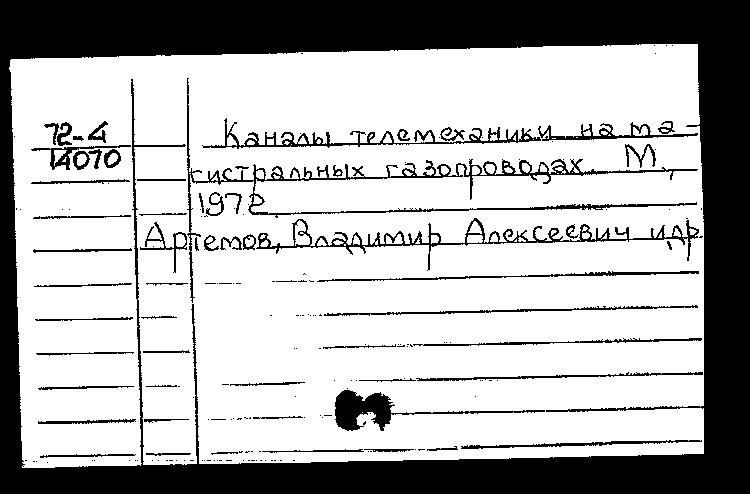 72-4
14070
Каналы телемеханики на ма-
гистральных газопроводах. М.,
1972
Артемов, Владимир Алексеевич и др